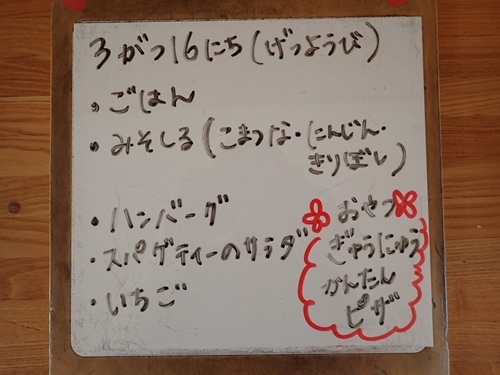 3がつ16にち(げつようび)
・ごはん
・みそしる(こまつな・にんじん・
きりぼし)
・ハンバーグ
・スパゲティーのサラダ
・いちご
おやつ
ぎゅうにゅう
かんたん
ピザ